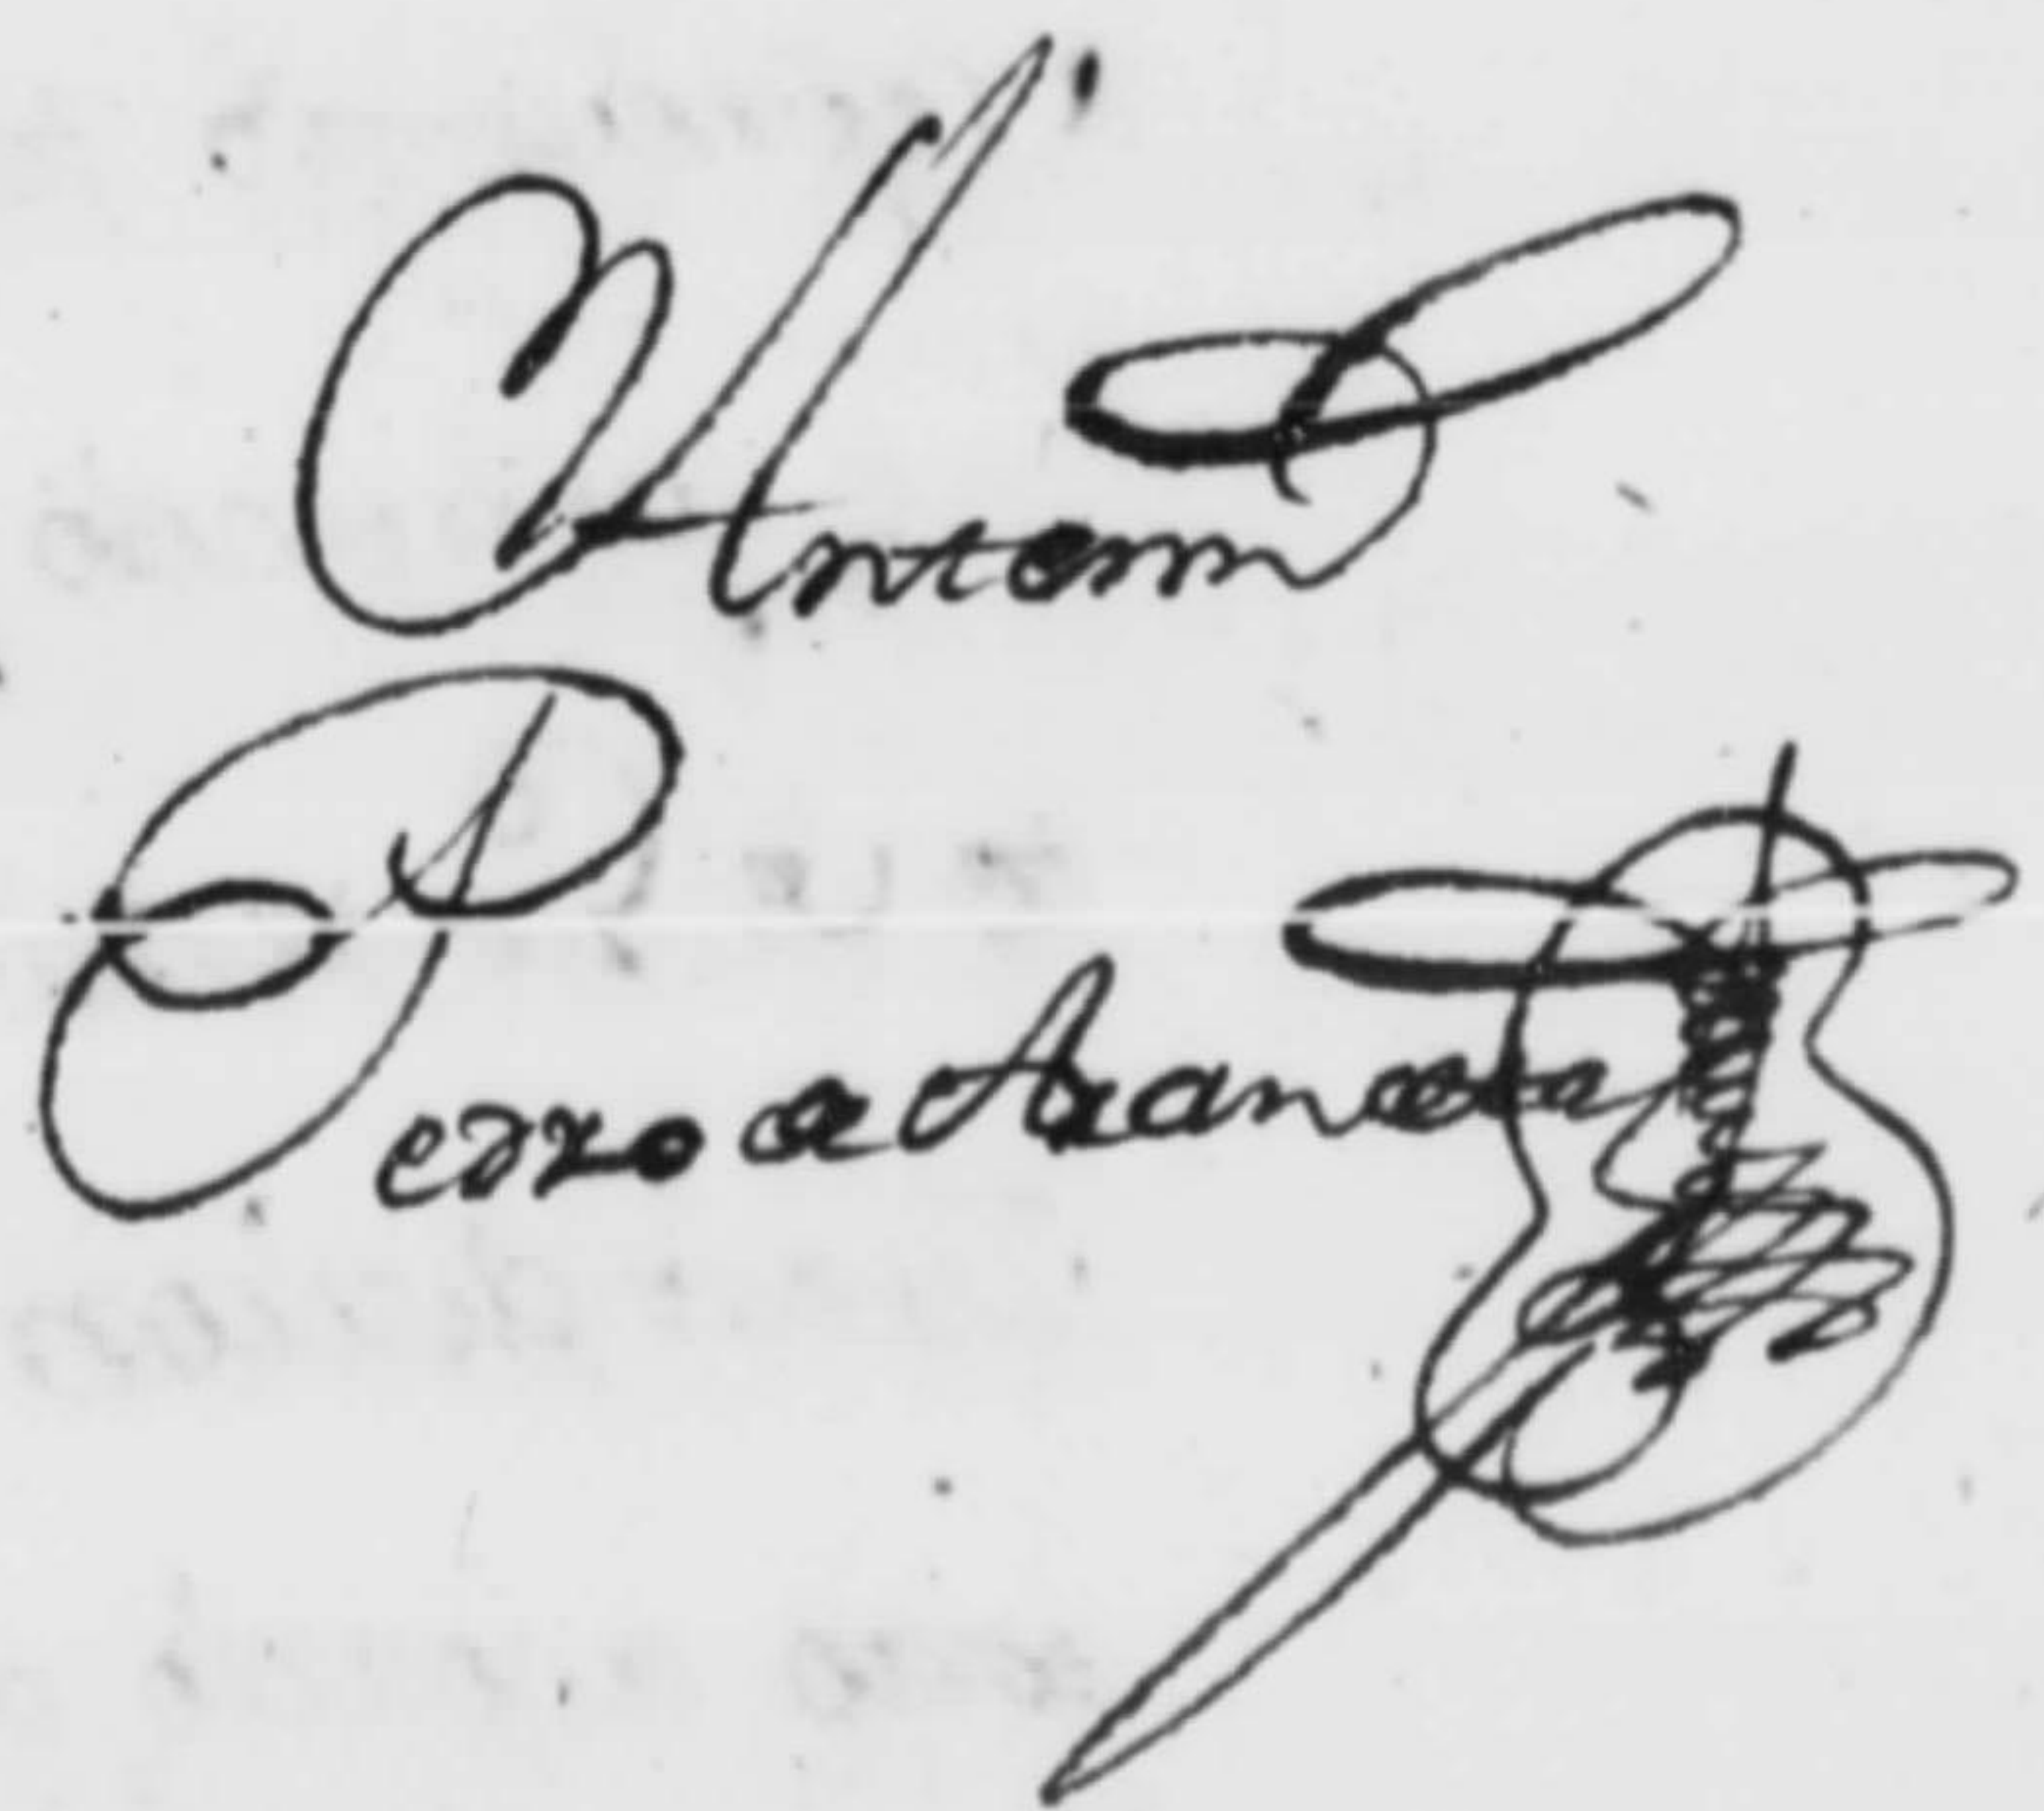 Antonio
Pedro de Araneda